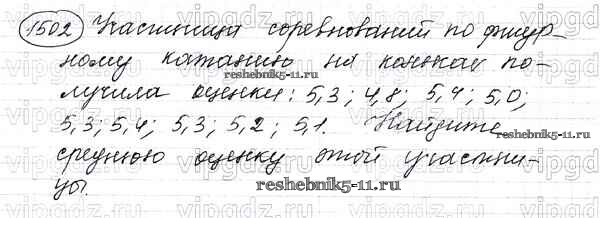 1502 Участница соревнований по фигур-
ному катанию на коньках по-
лучила оценки: 5,3; 4,8; 5,4; 5,0;
5,3; 5,4; 5,3; 5,2; 5,1. Найдите
среднюю оценку этой участни-
цы.
reshebnik5-11.ru
reshebnik5-11.ru
reshebnik5-11.ru